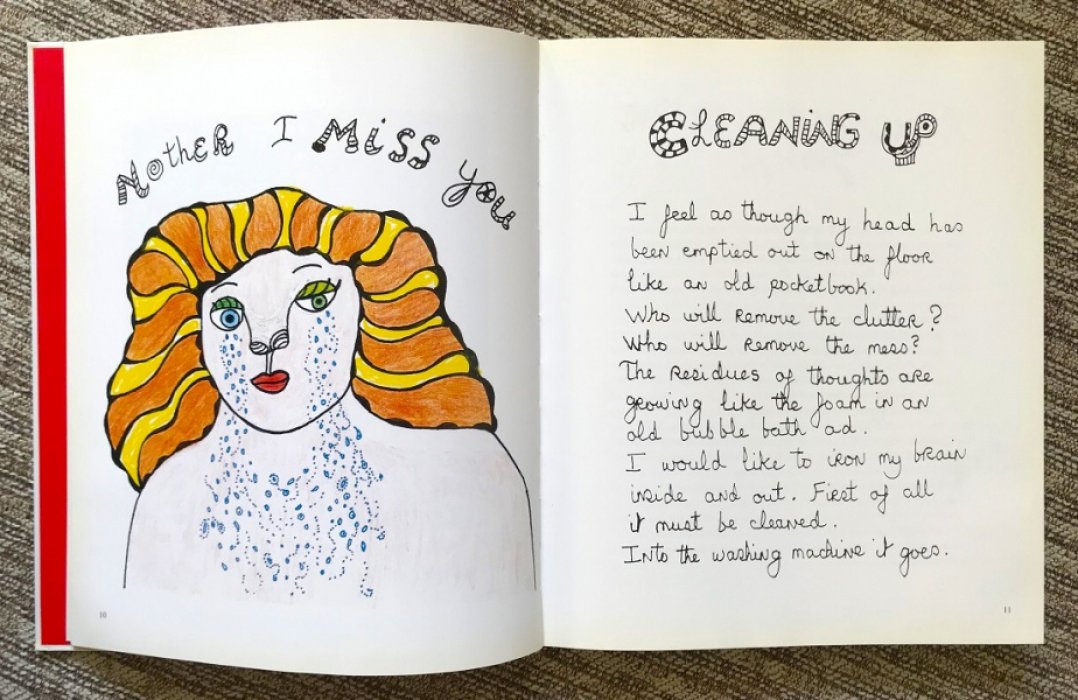 Mother I Miss you
10
CLEANING UP
I feel as though my head has
been emptied out on the floor
like an old pocketbook.
Who will remove the clutter?
Who will remove the mess?
The residues of thoughts are
growing like the foam in an
old bubble bath ad.
I would like to iron my brain
inside and out. First of all
it must be cleaned.
Into the washing machine it goes.
11